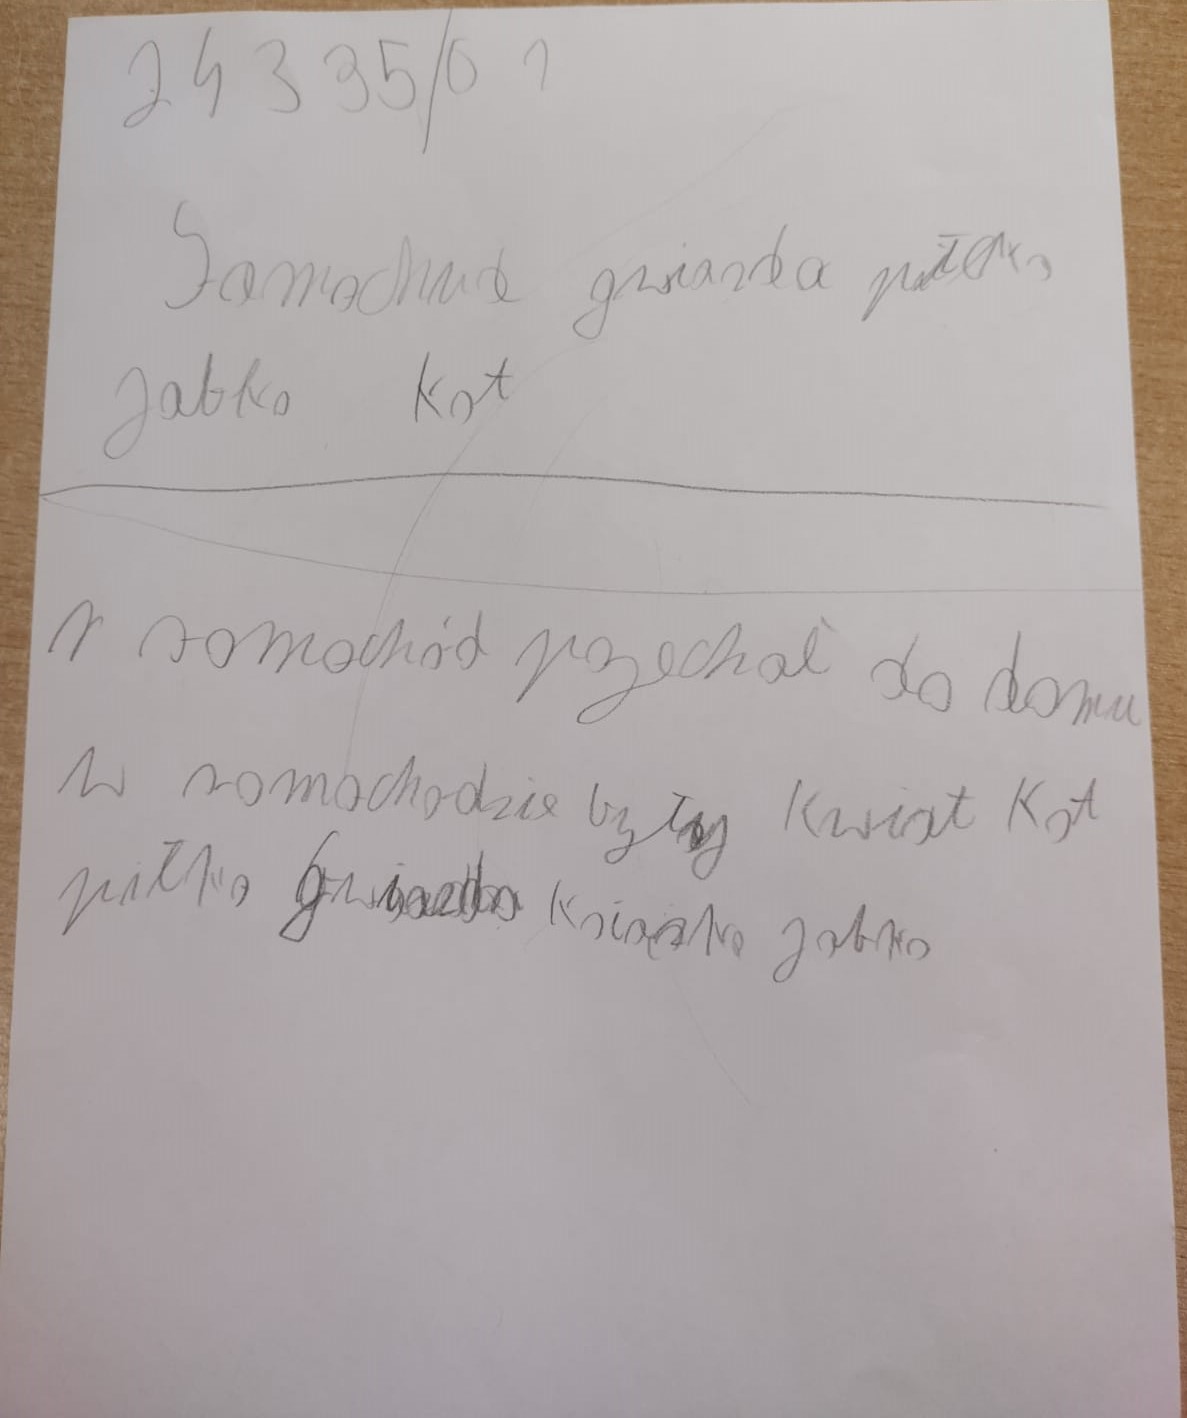 24335/01
Samochud gwiazda piłka
jabko kot
samochód pzyechał do domu
w samochodzie były kwiat kot
piłka gwiazda ksiązka jabko